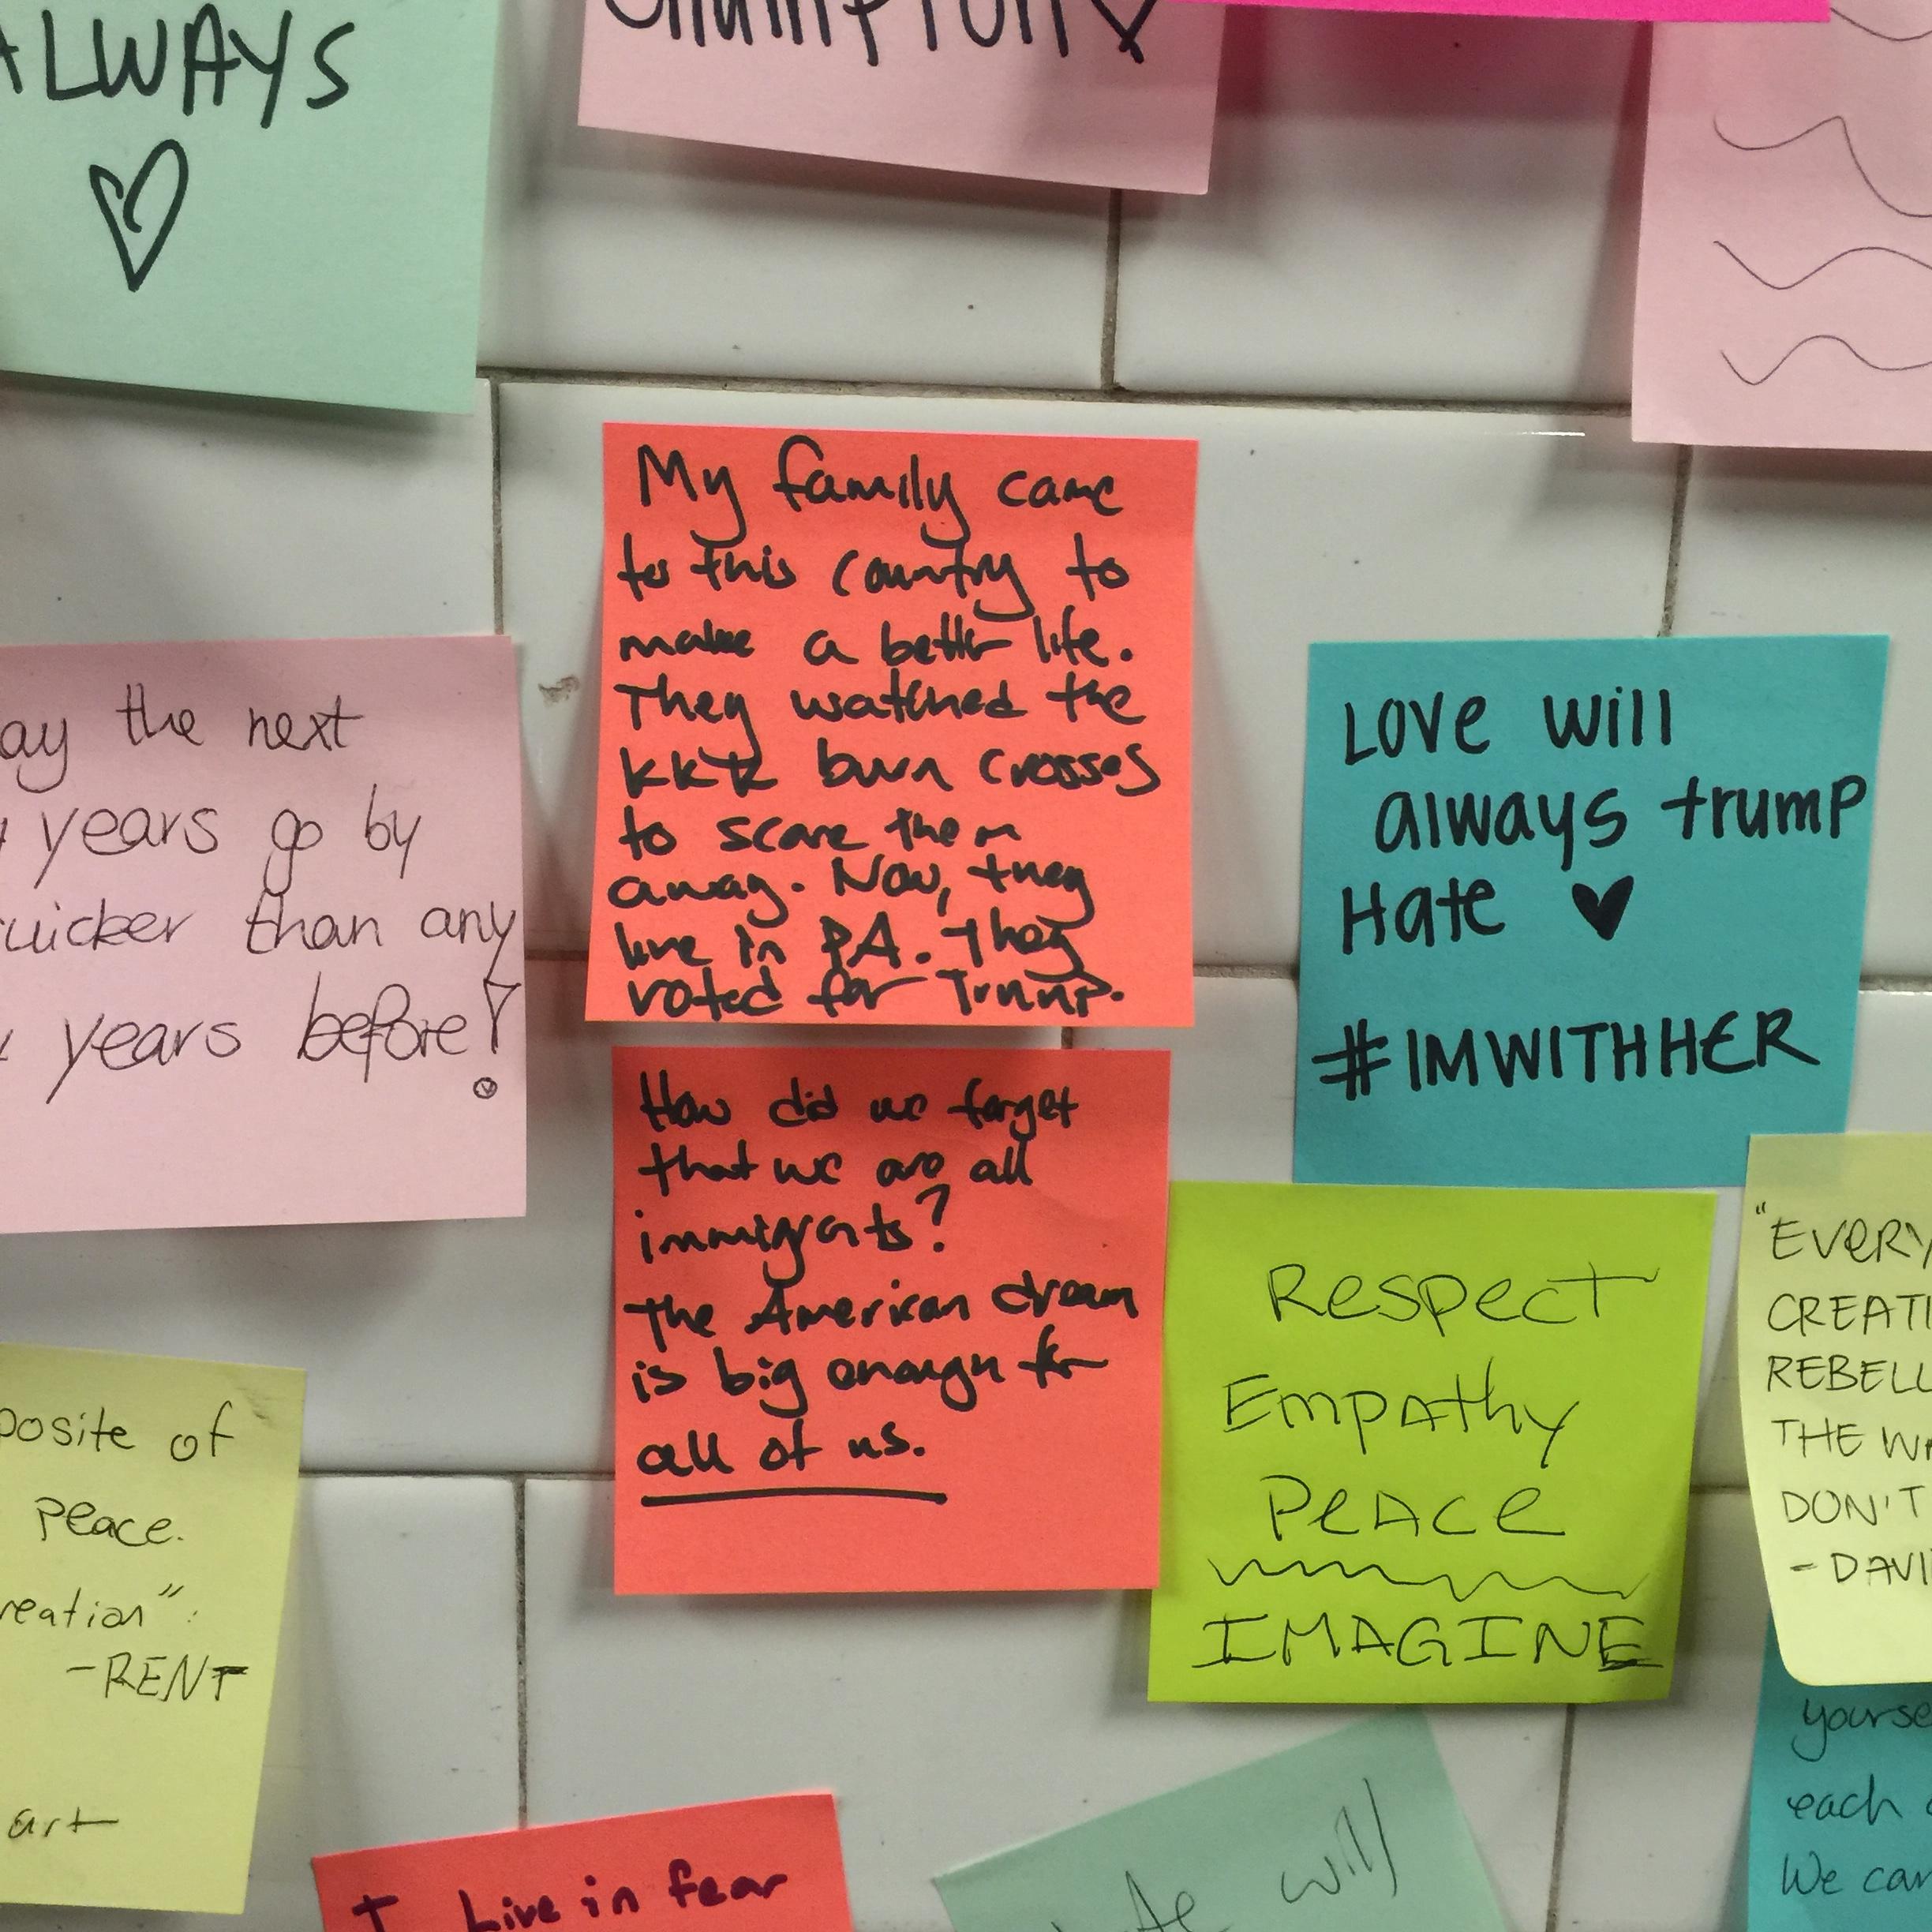 ALWAYS
My family came
to this country to
make a better life.
They watched the
KKK burn crosses
to scare them
away. Now, they
live in PA. They
voted for Trump.
How did we forget
that we are all
immigrants?
The American dream
is big enough for
all of us.
Love will
always trump
Hate
#IMWITHHER
Respect
Empathy
Peace
IMAGINE
ay the next
years go by
uicker than any
years before!
posite of
peace.
reation".
-RENT
art
"EVERY
CREATI
REBELL
THE WA
DON'T
- DAVI
yourse
each
We can
I live in fear
will